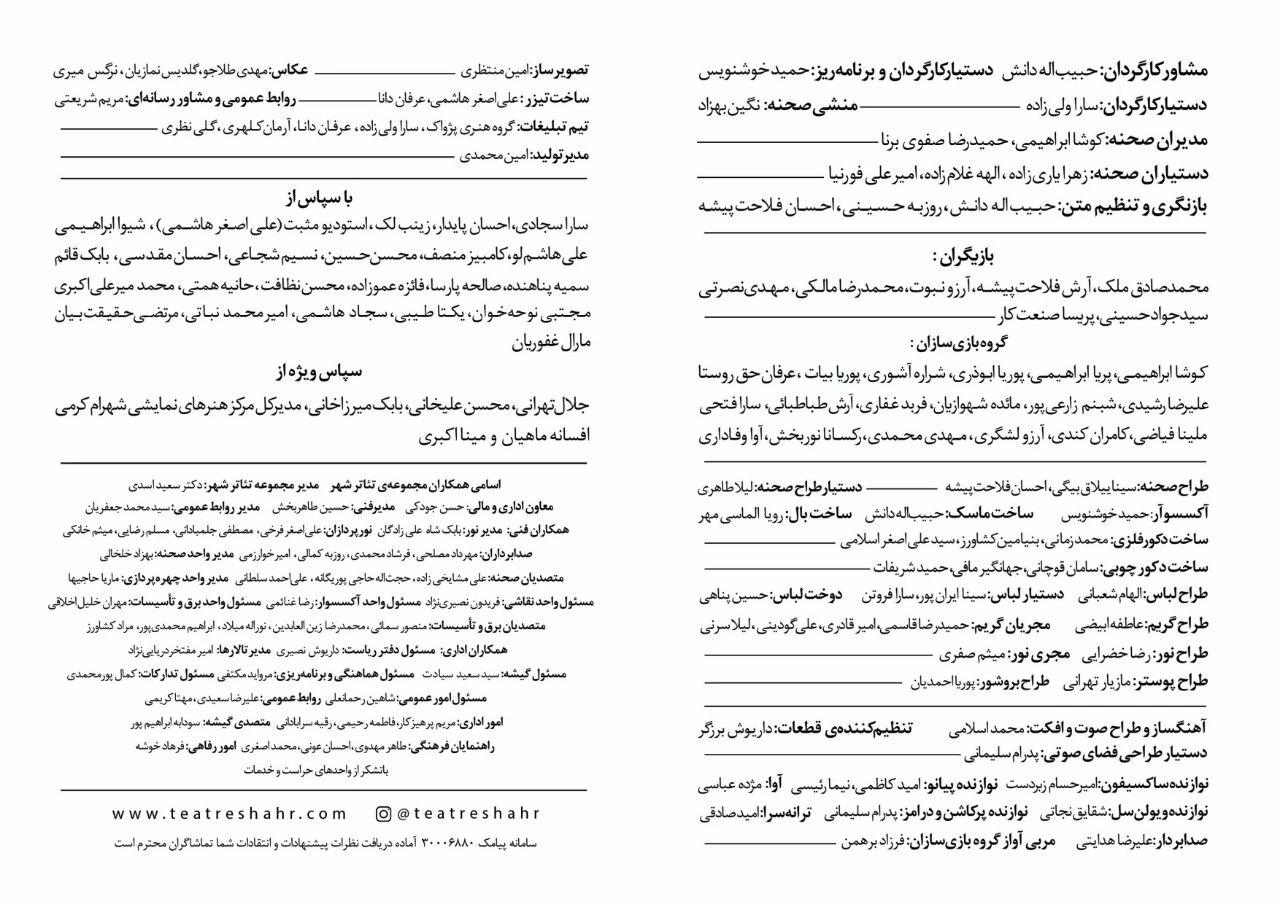 مشاور کارگردان: حبیب‌اله دانش دستیار کارگردان و برنامه‌ریز: حمید خوشنویس
دستیار کارگردان: سارا ولی زاده منشی صحنه: نگین بهزاد
مدیران صحنه: کوشا ابراهیمی، حمیدرضا صفوی برنا
دستیاران صحنه: زهرا یاری زاده، الهه غلام زاده، امیر علی فورنیا
بازنگری و تنظیم متن: حبیب اله دانش، روزبه حسینی، احسان فلاحت پیشه
بازیگران :
محمدصادق ملک، آرش فلاحت پیشه، آرزو نبوت، محمدرضا مالکی، مهدی نصرتی
سید جواد حسینی، پریسا صنعت کار
گروه بازی سازان :
کوشا ابراهیمی، پریا ابراهیمی، پوریا ابوذری، شراره آشوری، پوریا بیات، عرفان حق روستا
علیرضا رشیدی، شبنم زارعی پور، مائده شهوازیان، فربد غفاری، آرش طباطبائی، سارا فتحی
ملینا فیاضی، کامران کندی، آرزو لشگری، مهدی محمدی، رکسانا نوربخش، آوا وفاداری
طراح صحنه: سینا ییلاق بیگی، احسان فلاحت پیشه دستیار طراح صحنه: لیلا طاهری
آکسسوآر: حمید خوشنویس ساخت ماسک: حبیب‌اله دانش ساخت بال: رویا الماسی مهر
ساخت دکور فلزی: محمد زمانی، بنیامین کشاورز، سید علی اصغر اسلامی
ساخت دکور چوبی: سامان قوچانی، جهانگیر مافی، حمید شریفات
طراح لباس: الهام شعبانی دستیار لباس: سینا ایران پور، سارا فروتن دوخت لباس: حسین پناهی
طراح گریم: عاطفه ابیضی مجریان گریم: حمیدرضا قاسمی، امیر قادری، علی گودینی، لیلا سرنی
طراح نور: رضا خضرایی مجری نور: میثم صفری
طراح پوستر: مازیار تهرانی طراح بروشور: پوریا احمدیان
آهنگساز و طراح صوت و افکت: محمد اسلامی تنظیم‌کننده‌ی قطعات: داریوش برزگر
دستیار طراحی فضای صوتی: پدرام سلیمانی
نوازنده ساکسیفون: امیرحسام زبردست نوازنده پیانو: امید کاظمی، نیما رئیسی آوا: مژده عباسی
نوازنده ویولن سل: شقایق نجاتی نوازنده پرکاشن و درامز: پدرام سلیمانی ترانه‌سرا: امید صادقی
صدابردار: علیرضا هدایتی مربی آواز گروه بازی سازان: فرزاد برهمن
تصویر ساز: امین منتظری عکاس: مهدی طلاجو، گلدیس نمازیان، نرگس میری
ساخت تیزر : علی اصغر هاشمی، عرفان دانا روابط عمومی و مشاور رسانه‌ای: مریم شریعتی
تیم تبلیغات: گروه هنری پژواک، سارا ولی زاده، عرفان دانا، آرمان کلهری، گلی نظری
مدیر تولید: امین محمدی
با سپاس از
سارا سجادی، احسان پایدار، زینب لک، استودیو مثبت (علی اصغر هاشمی) ، شیوا ابراهیمی
علی هاشم لو، کامبیز منصف، محسن حسین، نسیم شجاعی، احسان مقدسی، بابک قائم
سمیه پناهنده، صالحه پارسا، فائزه عموزاده، محسن نظافت، حانیه همتی، محمد میرعلی اکبری
مجتبی نوحه خوان، یکتا طیبی، سجاد هاشمی، امیر محمد نباتی، مرتضی حقیقت بیان
مارال غفوریان
سپاس ویژه از
جلال تهرانی، محسن علیخانی، بابک میرزاخانی، مدیرکل مرکز هنرهای نمایشی شهرام کرمی
افسانه ماهیان و مینا اکبری
اسامی همکاران مجموعه‌ی تئاتر شهر مدیر مجموعه تئاتر شهر: دکتر سعید اسدی
معاون اداری و مالی: حسن جودکی مدیر فنی: حسین طاهربخش مدیر روابط عمومی: سید محمد جعفریان
همکاران فنی: مدیر نور: بابک شاه علی زادگان نورپردازان: علی اصغر فرخی، مصطفی جلمبادانی، مسلم رضایی، میثم خانکی
صدابرداران: مهرداد مصلحی، فرشاد محمدی، روزبه کمالی، امیر خوارزمی مدیر واحد صحنه: بهزاد خلخالی
متصدیان صحنه: علی مشایخی زاده، حجت‌اله حاجی پوریگانه، علی‌احمد سلطانی مدیر واحد چهره‌پردازی: ماریا حاجیها
مسئول واحد نقاشی: فریدون نصیری‌نژاد مسئول واحد آکسسوار: رضا غنائمی مسئول واحد برق و تأسیسات: مهران خلیل اخلاقی
متصدیان برق و تأسیسات: منصور سمائی، محمدرضا زین العابدین، نوراله میلاد، ابراهیم محمدی‌پور، مراد کشاورز
همکاران اداری: مسئول دفتر ریاست: داریوش نصیری مدیر تالارها: امیر مفتخر دریایی‌نژاد
مسئول گیشه: سید سعید سیادت مسئول هماهنگی و برنامه‌ریزی: مروارید مکتفی مسئول تدارکات: کمال پورمحمدی
مسئول امور عمومی: شاهین رحمانعلی روابط عمومی: علیرضا سعیدی، مهتا کریمی
امور اداری: مریم پرهیزکار، فاطمه رحیمی، رقیه سرابادانی متصدی گیشه: سودابه ابراهیم پور
راهنمایان فرهنگی: طاهر مهدوی، احسان عونی، محمد اصغری امور رفاهی: فرهاد خوشه
باتشکر از واحدهای حراست و خدمات
www.teatreshahr.com @teatreshahr
سامانه پیامک ۳۰۰۰۶۸۸۰ آماده دریافت نظرات پیشنهادات و انتقادات شما تماشاگران محترم است